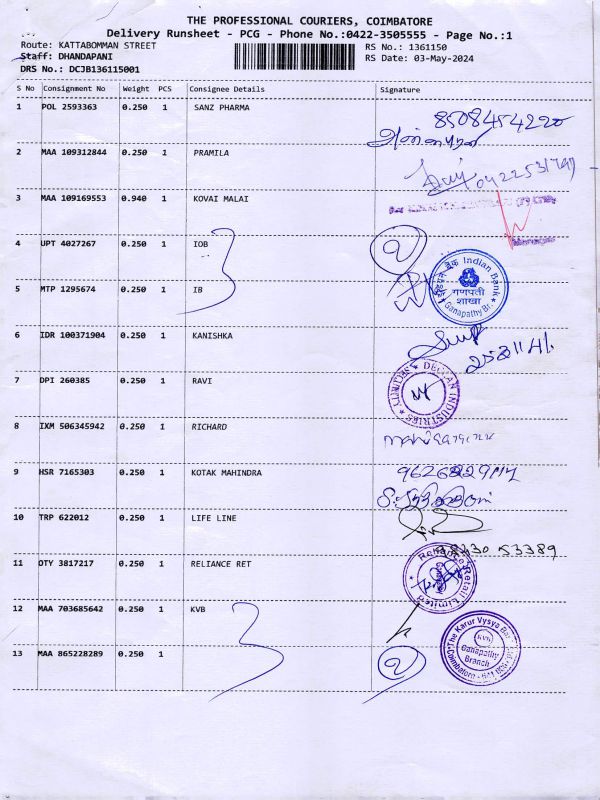 THE PROFESSIONAL COURIERS, COIMBATORE
Delivery Runsheet - PCG - Phone No.:0422-3505555 - Page No.:1
Route: KATTABOMMAN STREET
RS No.: 1361150
Staff: DHANDAPANI
RS Date: 03-May-2024
DRS No.: DCJB136115001
S No Consignment No Weight PCS Consignee Details Signature
1 POL 2593363 0.250 1 SANZ PHARMA 8508454220
2 MAA 109312844 0.250 1 PRAMILA
3 MAA 109169553 0.940 1 KOVAI MALAI
4 UPT 4027267 0.250 1 IOB 2
3
5 MTP 1295674 0.250 1 IB
इंडियन बैंक Indian Bank
गणपती
शाखा
Ganapathy Br.
6 IDR 100371904 0.250 1 KANISHKA
7 DPI 260385 0.250 1 RAVI
INDUSTRIES
8 IXM 506345942 0.250 1 RICHARD
9 HSR 7165303 0.250 1 KOTAK MAHINDRA
10 TRP 622012 0.250 1 LIFE LINE
53389
11 OTY 3817217 0.250 1 RELIANCE RET
Reliance Retail Limited
12 MAA 703685642 0.250 1 KVB
3
The Karur Vysya Bank
KVB
Ganapathy
Branch
13 MAA 865228289 0.250 1 2